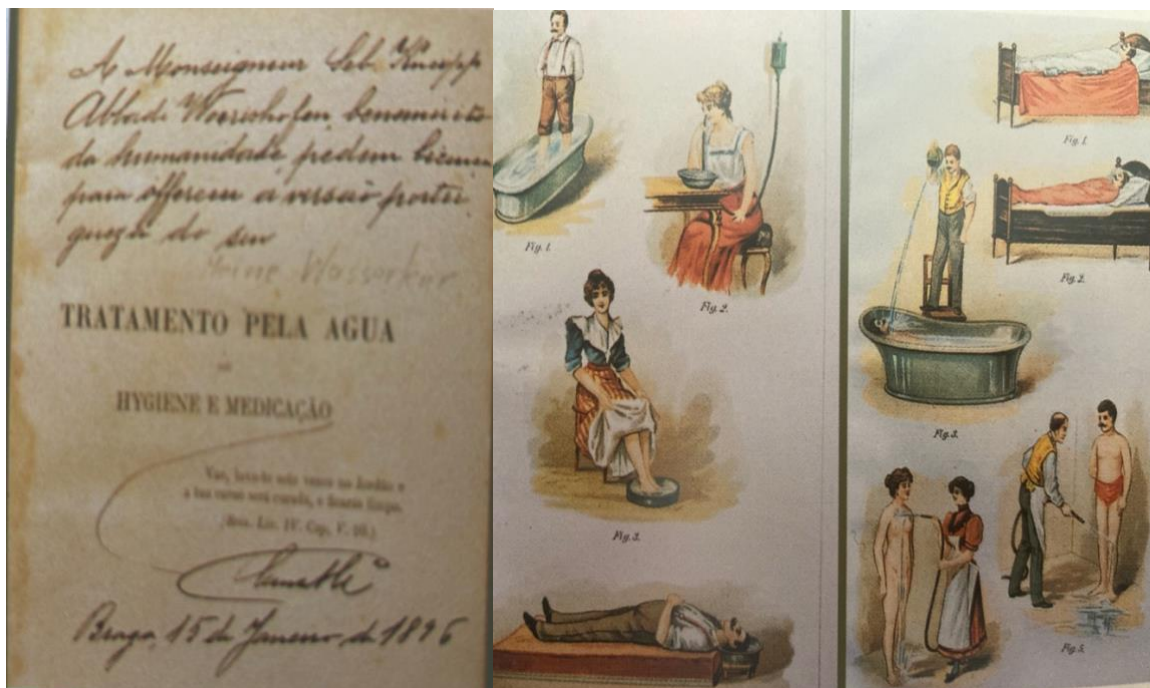 A Monseigneur Seb. Kneipp
Abbade Woerishofen, benemerito
da humanidade, pedem licença
para offerecer a versão portu
gueza do seu
Meine Wasserkur
TRATAMENTO PELA AGUA
OU
HYGIENE E MEDICAÇÃO
Vae, lava-te sete vezes no Jordão e
a tua carne será curada, e ficarás limpo.
(Reis. Liv. IV. Cap. V. 10.)
Braga, 15 de Janeiro de 1896
Fig. 1.
Fig. 2.
Fig. 3.
Fig. 1.
Fig. 2.
Fig. 3.
Fig. 5.